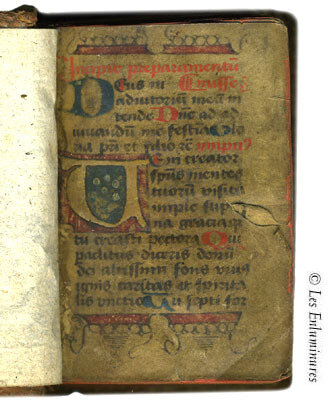 Incipit preparamentū
Deus in Crucse
adiutoriū meū in
tende Dn̄e ad ad
iuuandū me festina Glo
ria pr̄i et filio ꝛc̄ ympnꝰ
Veni creator
spūs mentes
tuorum visita
imple sup
na gracia que
tu creasti pectora Qui
paclitus diceris donū
dei altissimi fons viuꝰ
ignis caritas et spirita
lis unctio Tu septi for
© Les Enluminures